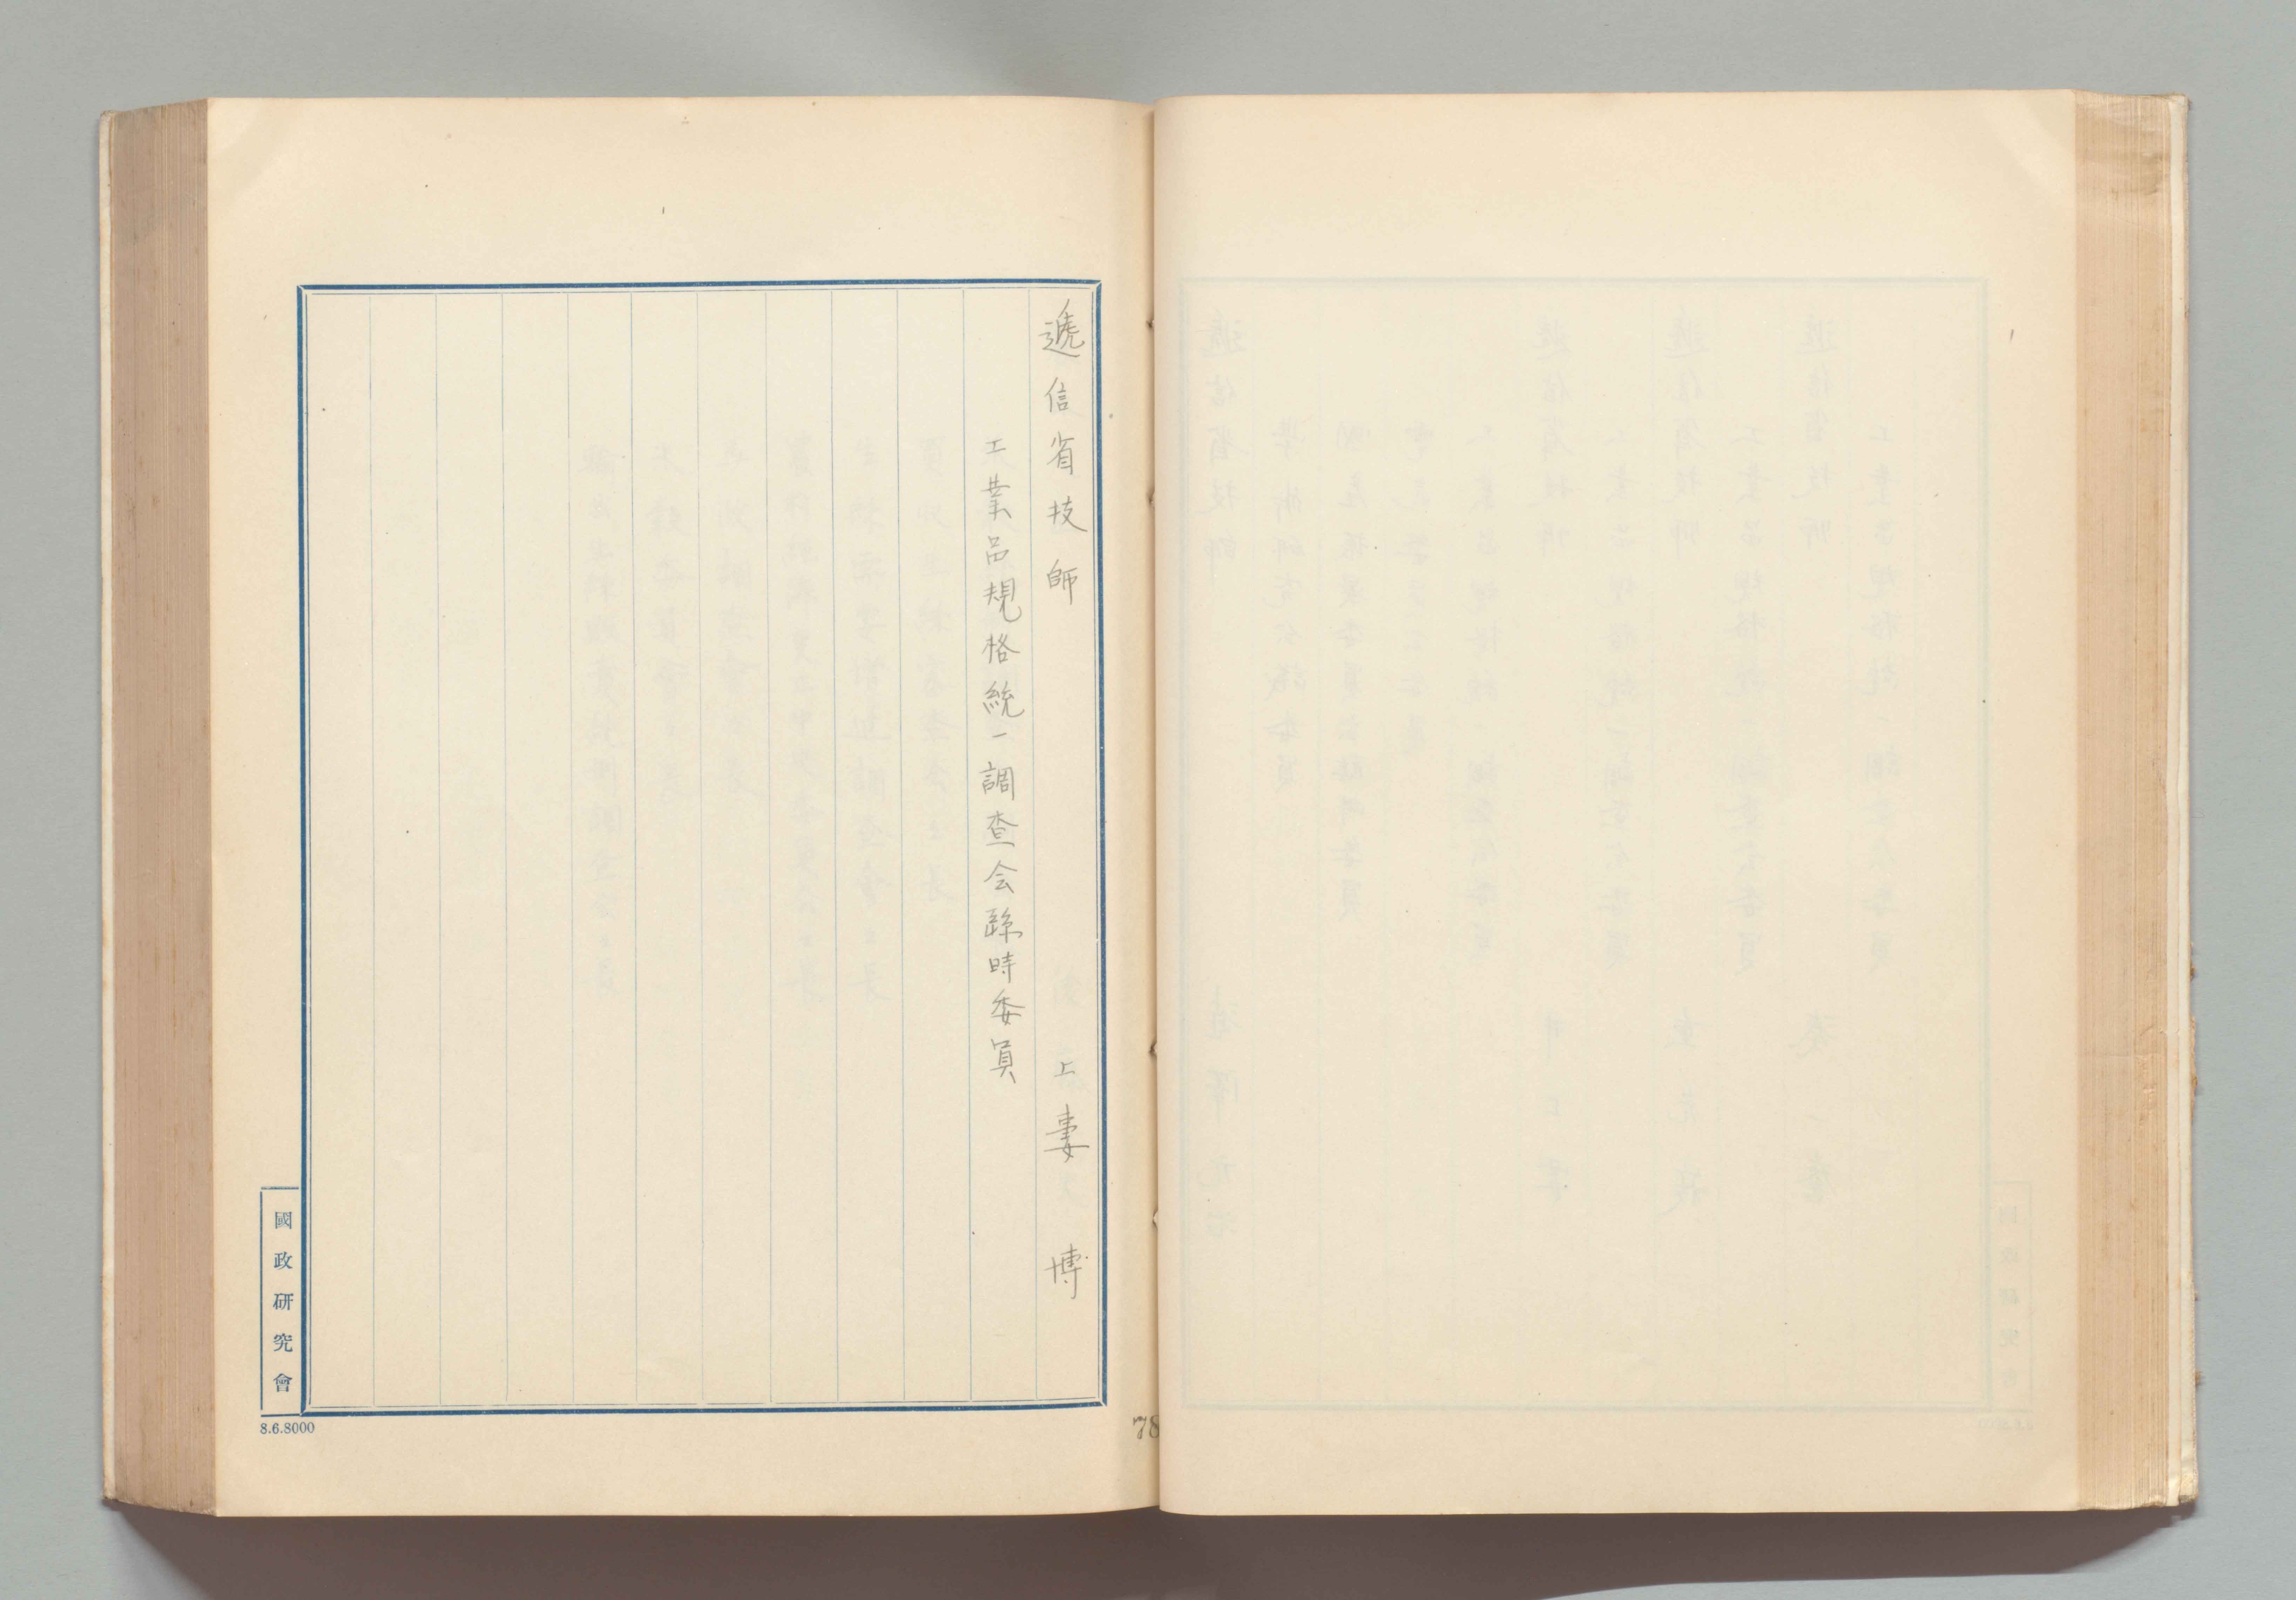 遞信省技師 上妻 博
工業品規格統一調査会臨時委員
國政研究會
8.6.8000
78